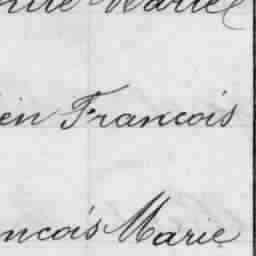 Marie
en Francois
ncois Marie